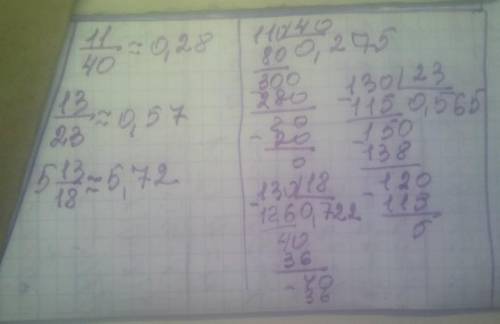 11/40 ≈ 0,28
13/23 ≈ 0,57
5 13/18 ≈ 5,72
110 | 40
80 0,275
300
280
20
- 20
0
130 | 23
- 115 0,565
- 150
138
- 120
115
5
- 130 | 18
126 0,722
40
36
- 40
36